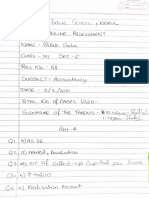 Public School, Nerul
Online Assessment
Name - Palak Saha
Class - XII Sec - E
Roll No - 38
Subject - Accountancy
Date - 3/7/2021
Total No of Pages Used -
Signature of the Parents -
Part - A
Q1 a) RS 36
Q2 a) Needed, Revaluation
Q3 a) of Called-Up Capital per Share
Q4 b)
Q5 a) Realisation Account